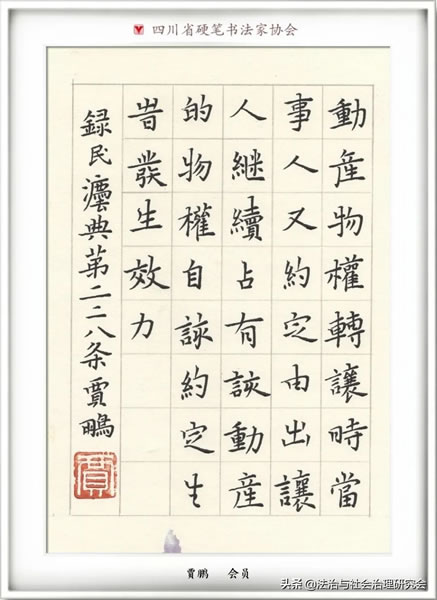 四川省硬笔书法家协会
動産物權轉讓時當
事人又約定由出讓
人継續占有該動産
的物權自該約定生
旹發生效力
録民灋典第二二八条賈鵬
賈
贾鹏 会员
头条 @法治与社会治理研究会